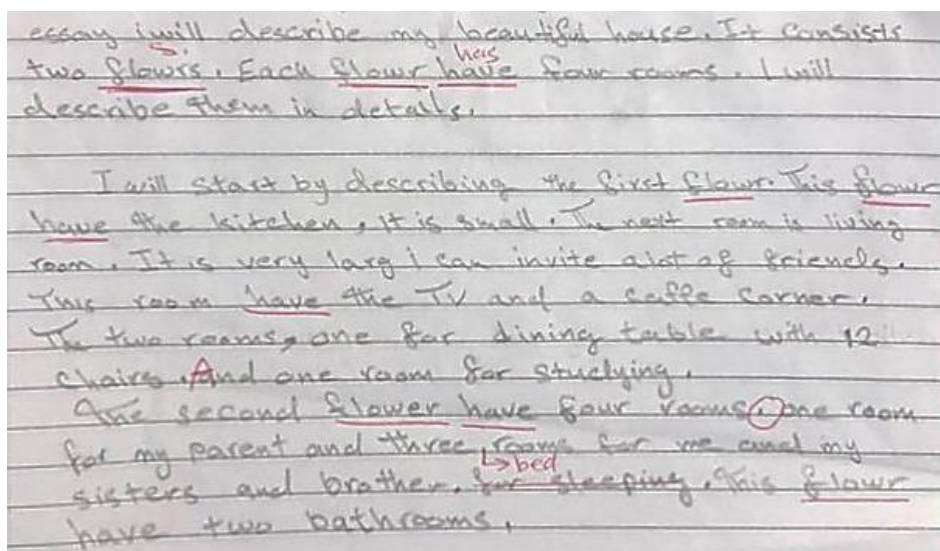 essay i will describe my beautiful house. It consists
s. has
two flowrs. Each flowr have four rooms. I will
describe them in details.
I will start by describing the first flowr. This flowr
have the kitchen, It is small. The next room is living
room. It is very larg i can invite alot of friends.
This room have the TV and a caffe corner.
The two rooms, one for dining table with 12
chairs. And one room for studying.
The second flower have four rooms. one room
for my parent and three rooms for me and my
bed
sisters and brather. for sleeping. This flowr
have two bathrooms.